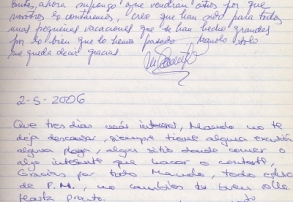 antes, ahora supongo que vendrán años por que
nosotros lo contaremos, creo que han sido para todos
unas pequeñas vacaciones que se han hecho grandes
por lo bien que lo hemos pasado. Manolo solo
me queda decir gracias.
2-5-2006
Que tres días más intensos, Manolo no te
deja descansar, siempre tiene alguna excusión
alguna playa, algún sitio donde comer o
algo interesante que hacer o contarte,
Gracias por todo Manolo, todo
de P.M., no cambies tu buen
Hasta pronto.